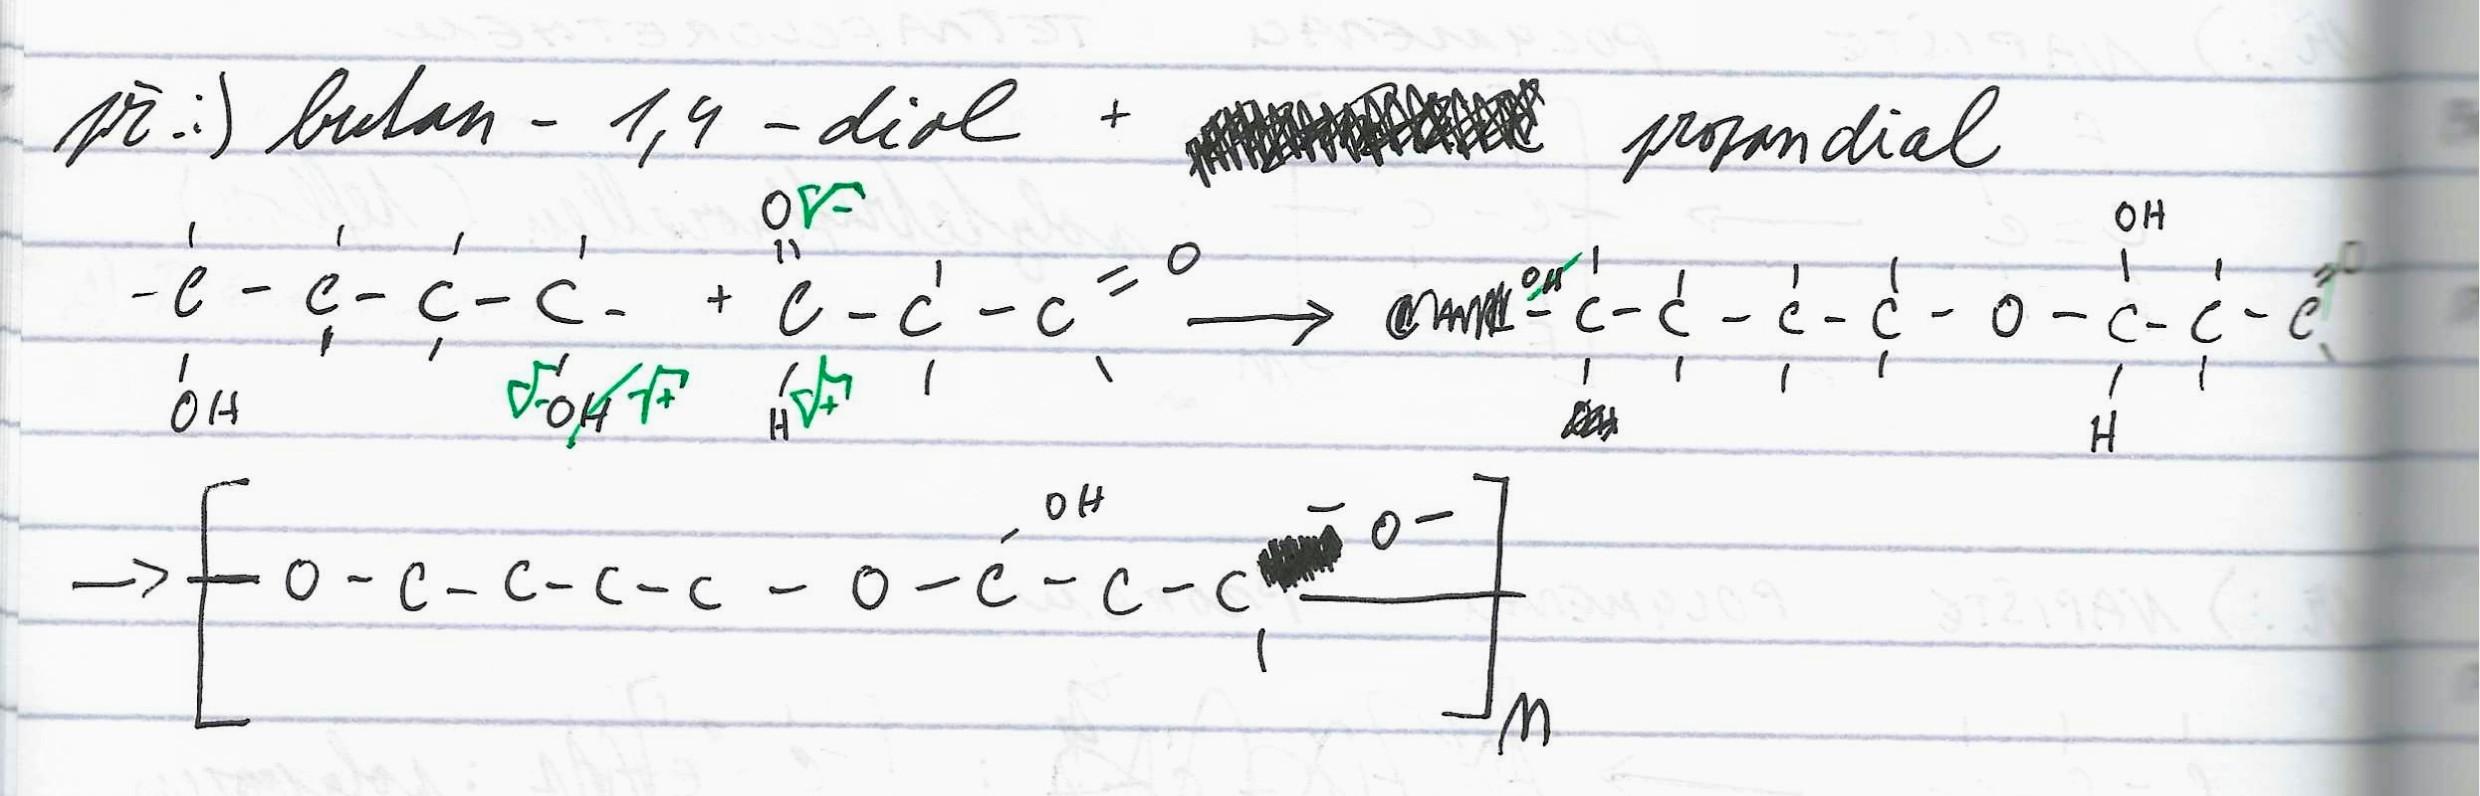 př.:) butan - 1,4 - diol + propandial
O δ- OH
- C - C - C - C - + C - C - C = O → OH - C - C - C - C - O - C - C - C = O
OH δ- OH δ+ H δ+ H
OH O -
→ [ - O - C - C - C - C - O - C - C - C - ] n